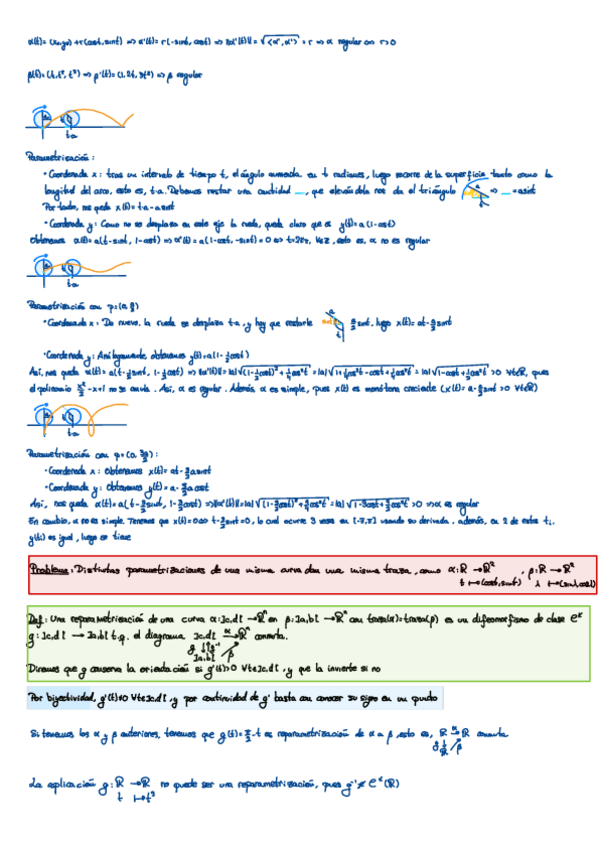 α(t)=(x₀,y₀)+r(cost,sint) ⇒ α'(t)=r(-sint, cost) ⇒ ||α'(t)||=√<α',α'> = r ⇒ α regular con r>0
β(t)=(t,t²,t³) ⇒ β'(t)=(1,2t,3t²) ⇒ β regular
t·a
Parametrización:
· Coordenada x: tras un intervalo de tiempo t, el ángulo aumenta en t radianes, luego recorre de la superficie tanto como la
longitud del arco, esto es, t·a. Debemos restar una cantidad __, que elevándola nos da el triángulo ⇒ __=asint
Por tanto, nos queda x(t)=t·a-asint
· Coordenada y: Como no se desplaza en este eje la rueda, queda claro que es y(t)=a(1-cost)
Obtenemos α(t)=a(t-sint, 1-cost) ⇒ α'(t)=a(1-cost, -sint)=0 ⇔ t=2kπ, k∈ℤ, esto es, α no es regular
t·a
Parametrización con p=(0,a/2)
· Coordenada x: De nuevo, la rueda se desplaza t·a, y hay que restarle a/2 sint, luego x(t)=at-a/2 sint
· Coordenada y: Análogamente, obtenemos y(t)=a(1-1/2cost)
Así, nos queda α(t)=a(t-1/2sint, 1-1/2cost) ⇒ ||α'(t)||=|a|√(1-1/2cost)²+1/4sin²t =|a|√1+1/4cos²t-cost+1/4sin²t >0 ∀t∈ℝ, pues
el polinomio x²/2-x+1 no se anula. Así, α es regular. Además α es simple, pues x(t) es monótona creciente (x'(t)=a-a/2cost >0 ∀t∈ℝ)
t·a
Parametrización con p=(0,3a/2):
· Coordenada x: Obtenemos x(t)=at-3/2asint
· Coordenada y: Obtenemos y(t)=a-3/2acost
Así, nos queda α(t)=a(t-3/2sint, 1-3/2cost) ⇒ ||α'(t)||=|a|√(1-3/2cost)²+9/4sin²t >0 ⇒ α es regular
En cambio, α no es simple. Tenemos que x(t)=0 ⇔ t-3/2sint=0, lo cual ocurre 3 veces en [-π,π] usando su derivada. además, en 2 de estos tᵢ.
y(tᵢ) es igual, luego se tiene
Problema: Distintas parametrizaciones de una misma curva dan una misma traza, como α:ℝ→ℝ², β:ℝ→ℝ²
t↦(cost,sint) λ↦(sinλ,cosλ)
Def: Una reparametrización de una curva α:]c,d[ →ℝⁿ en β:]a,b[ →ℝⁿ con traza(α)=traza(β) es un difeomorfismo de clase Cᵏ
g:]c,d[ →]a,b[ t.q. el diagrama ]c,d[ →α ℝⁿ conmuta.
g ↓↑g⁻¹ ↗β
]a,b[
Diremos que g conserva la orientación si g'(t)>0 ∀t∈]c,d[, y que la invierte si no
Por biyectividad, g'(t)≠0 ∀t∈]c,d[, y por continuidad de g' basta con conocer su signo en un punto
Si tenemos los α y β anteriores, tenemos que g(t)=π/2-t es reparametrización de α a β, esto es, ℝ →α ℝ² conmuta
g↓ ↗β
ℝ
La aplicación g: ℝ →ℝ no puede ser una reparametrización, pues g⁻¹∉Cᵏ(ℝ)
t ↦t³